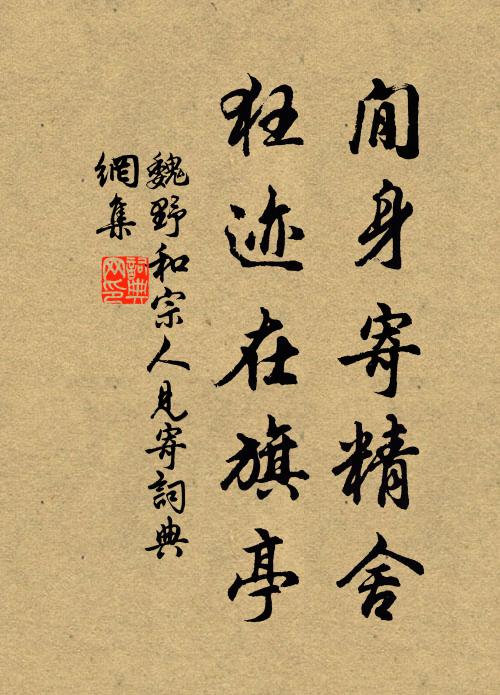 閒身寄精舍
狂迹在旗亭
魏野和宗人見寄詞典
網集
詞典網印